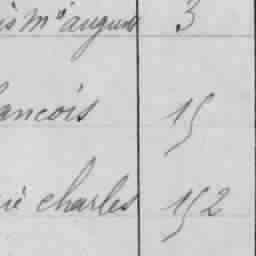 is Mie auguste 3
ancois 15
rié charles 152